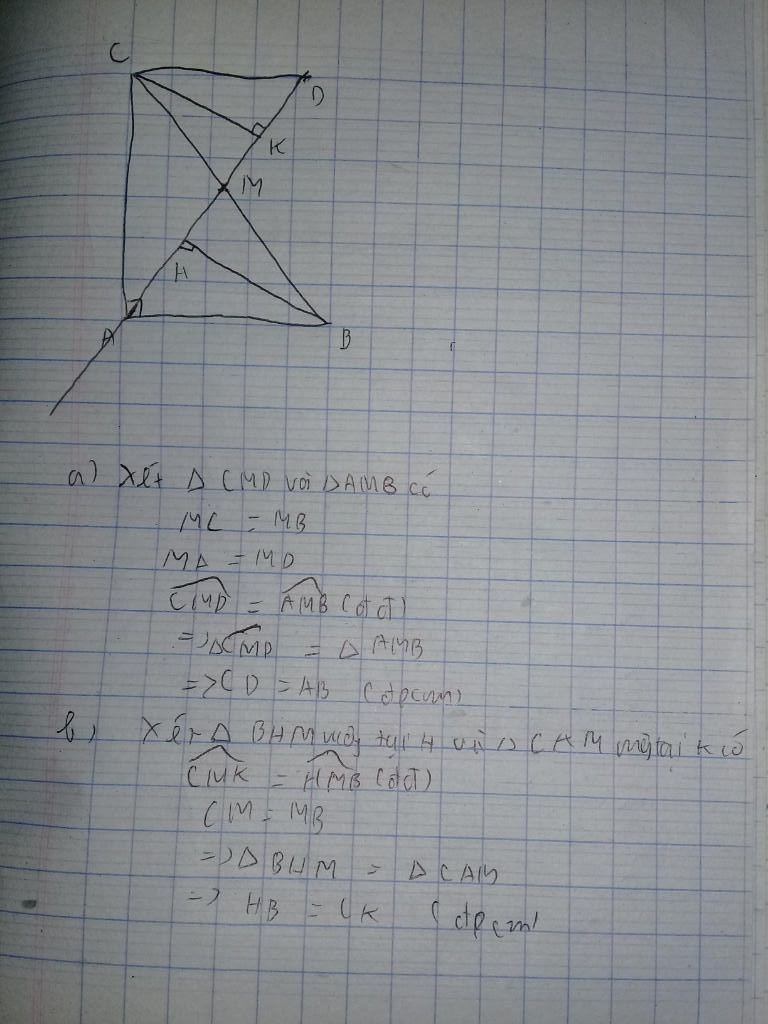 C
D
K
M
H
A
B
a) Xét Δ CMD và Δ AMB có
MC = MB
MA = MD
CMD = AMB (đđ)
=> ΔCMD = Δ AMB
=> CD = AB (đpcm)
b) Xét Δ BHM vuông tại H và Δ CKM tại K có
CMK = HMB (đđ)
CM = MB
=> Δ BHM = Δ
=> HB = CK (đpcm)